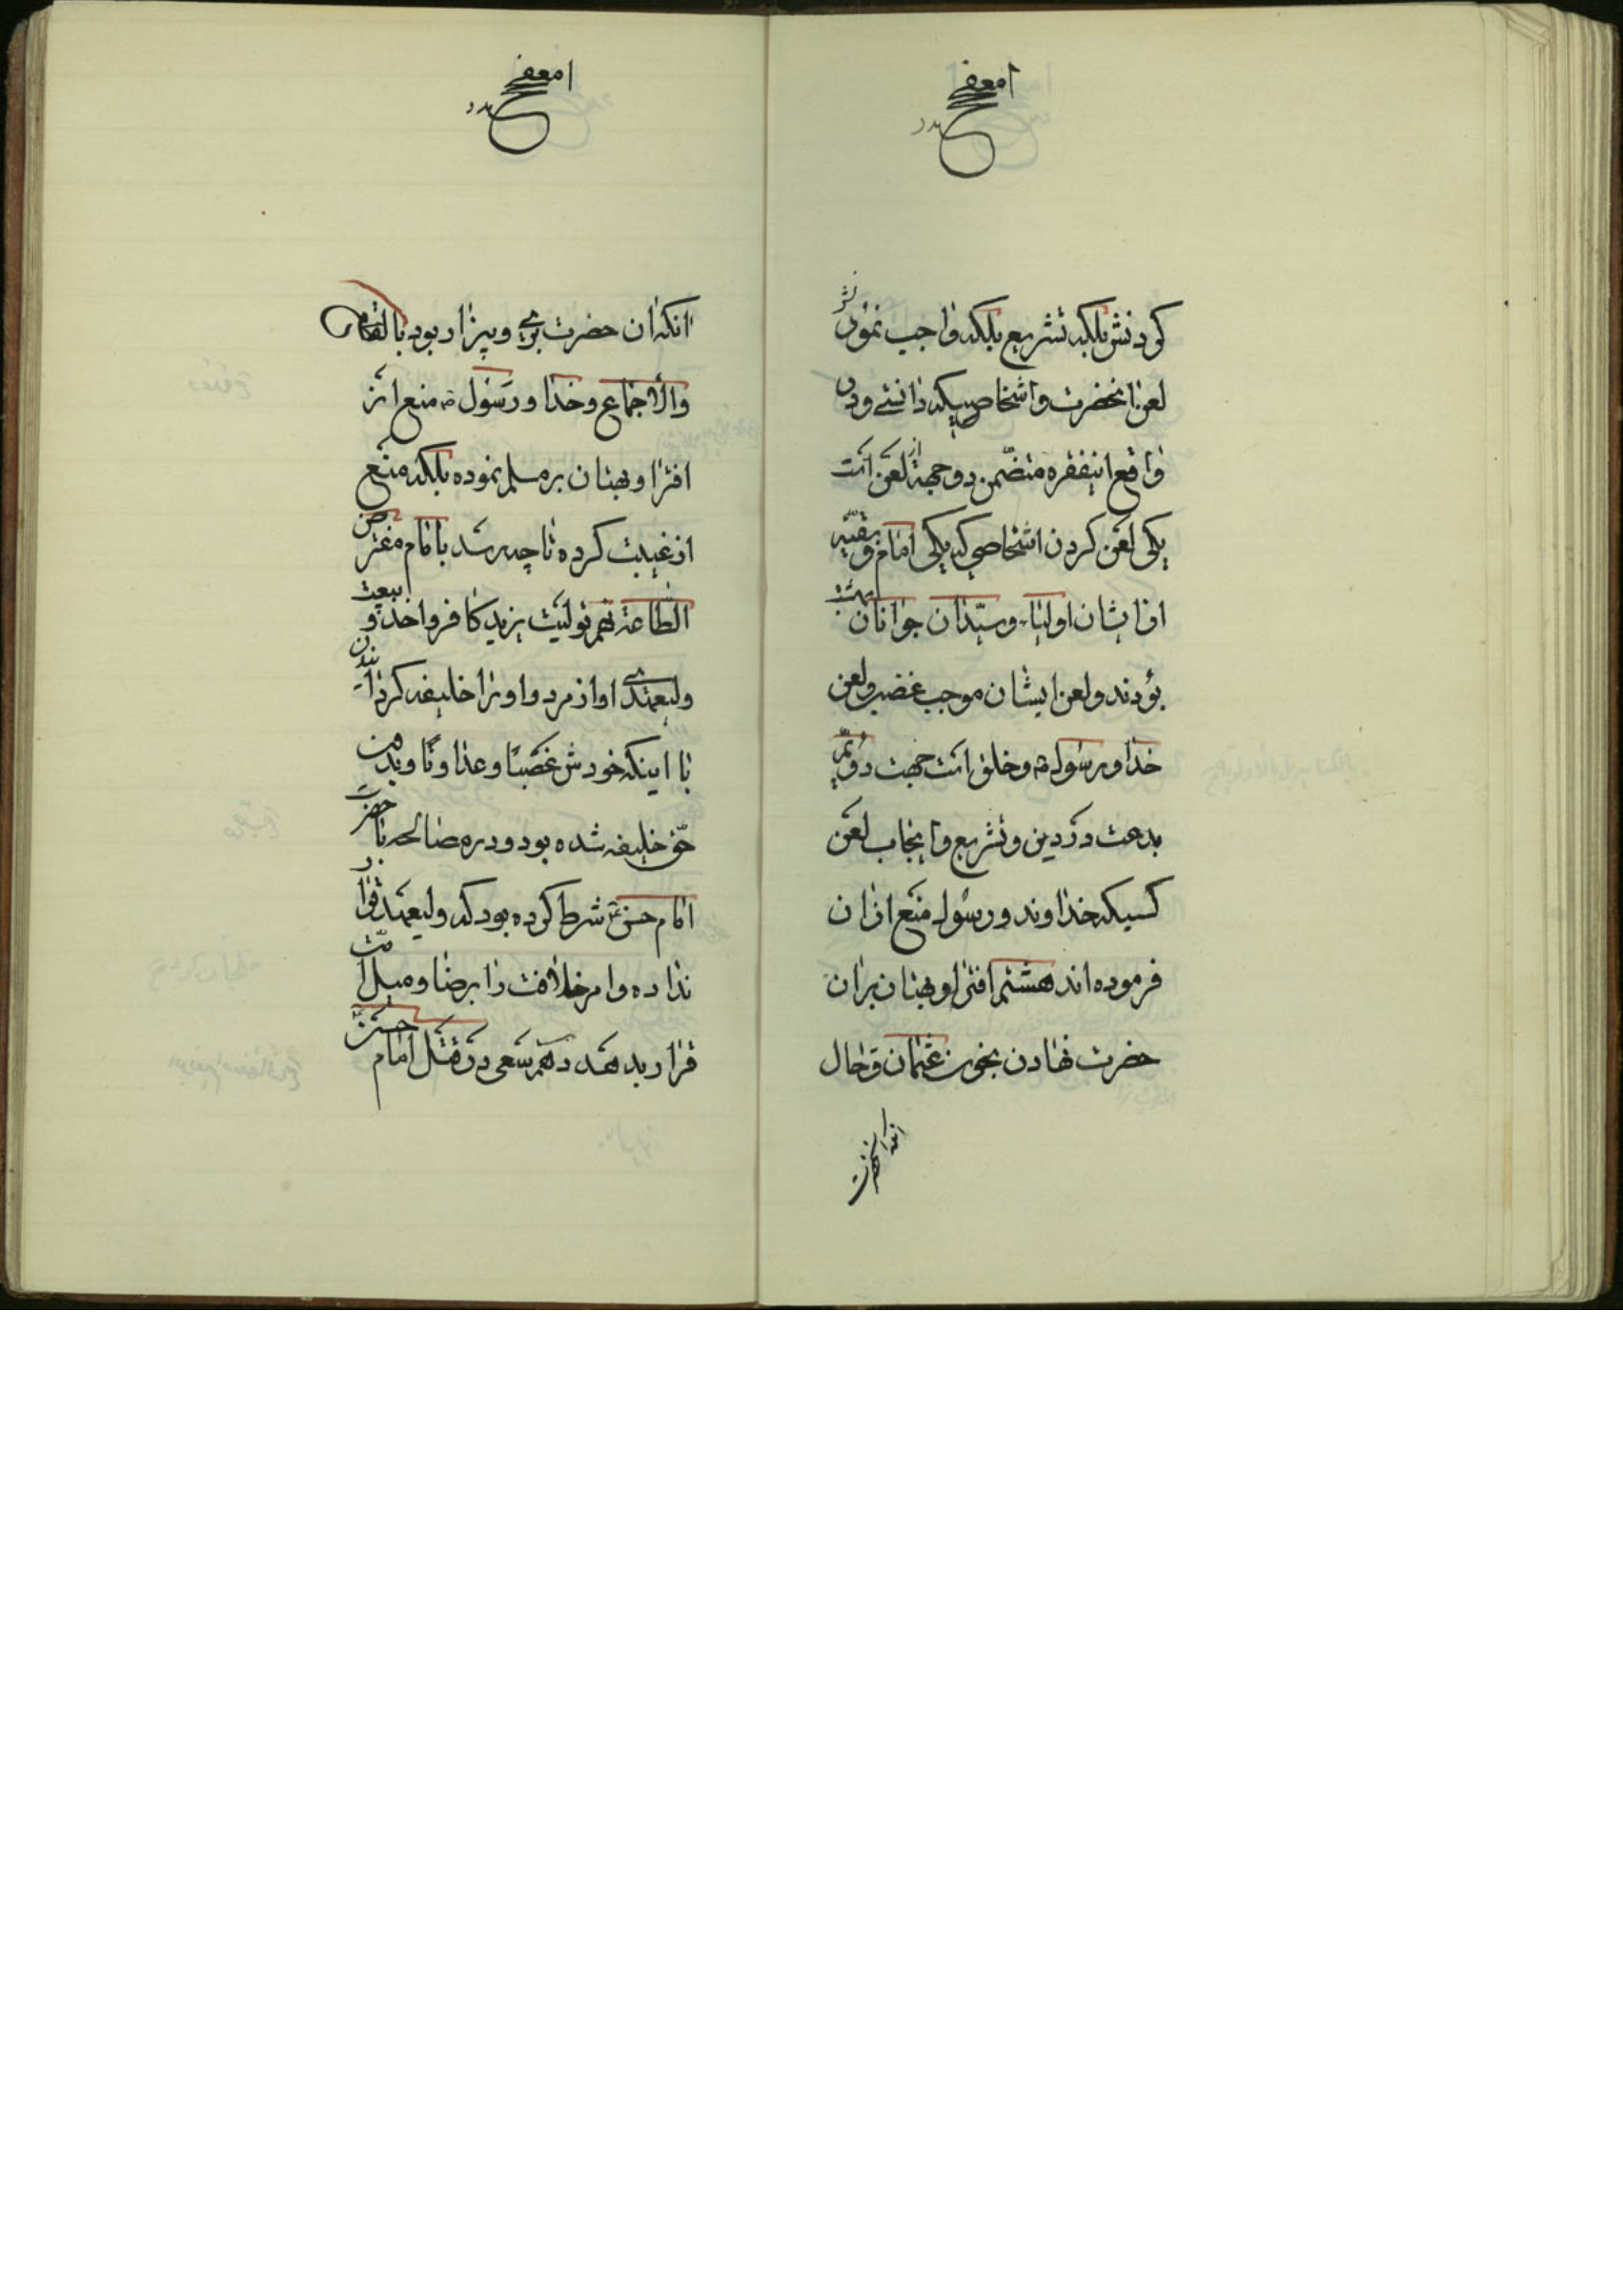 کردنش بلکه تشریع بلکه واجب نمودن
لعن انحضرت و اشخاصیکه دانستی و در
واقع اینفقره متضمن دو جهة از لعن است
یکی لعن کردن اشخاصی که یکی امام و بقیه
از ایشان اولیاء و سیدان جوانان بهشت
بودند و لعن ایشان موجب غضب و لعن
خدا و رسول ص و خلق است جهت دویم
بدعت در دین و تشریع و ایجاب لعن
کسیکه خداوند و رسول منع از ان
فرموده‌اند هشتم افترا و بهتان بران
حضرت نهادن بخون عثمان و حال
انکه انحضرت
انکه ان حضرت بری و بیزار بود باتفاق
والاجماع و خدا و رسول ص منع از
افترا و بهتان بر مسلم نموده بلکه منع
از غیبت کرده تا چه رسد بامام مفترض
الطاعة نهم تولیت یزید کافر و اخذ بیعت و
ولیعهدی او از مردم او را خلیفه گردانیدن
با اینکه خودش غصبا و عداونا و بدون
حق خلیفه شده بود و در مصالحه با حضرت
امام حسن ع شرط کرده بود که ولیعهد قرار
نداده و امر خلافت را برضا و میل امت
قرار بدهد دهم سعی در قتل امام حسن